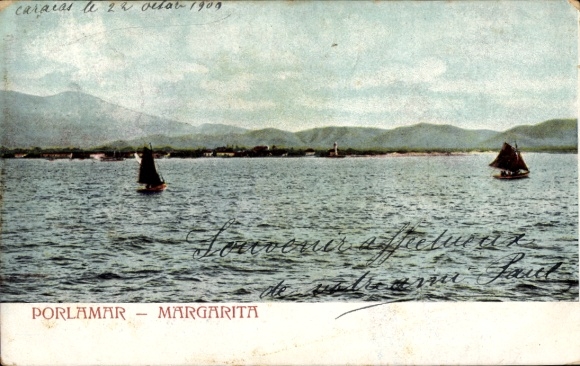 Caracas le 22 octobre 1909
Souvenir affectueux
de votre ami Paul
PORLAMAR – MARGARITA